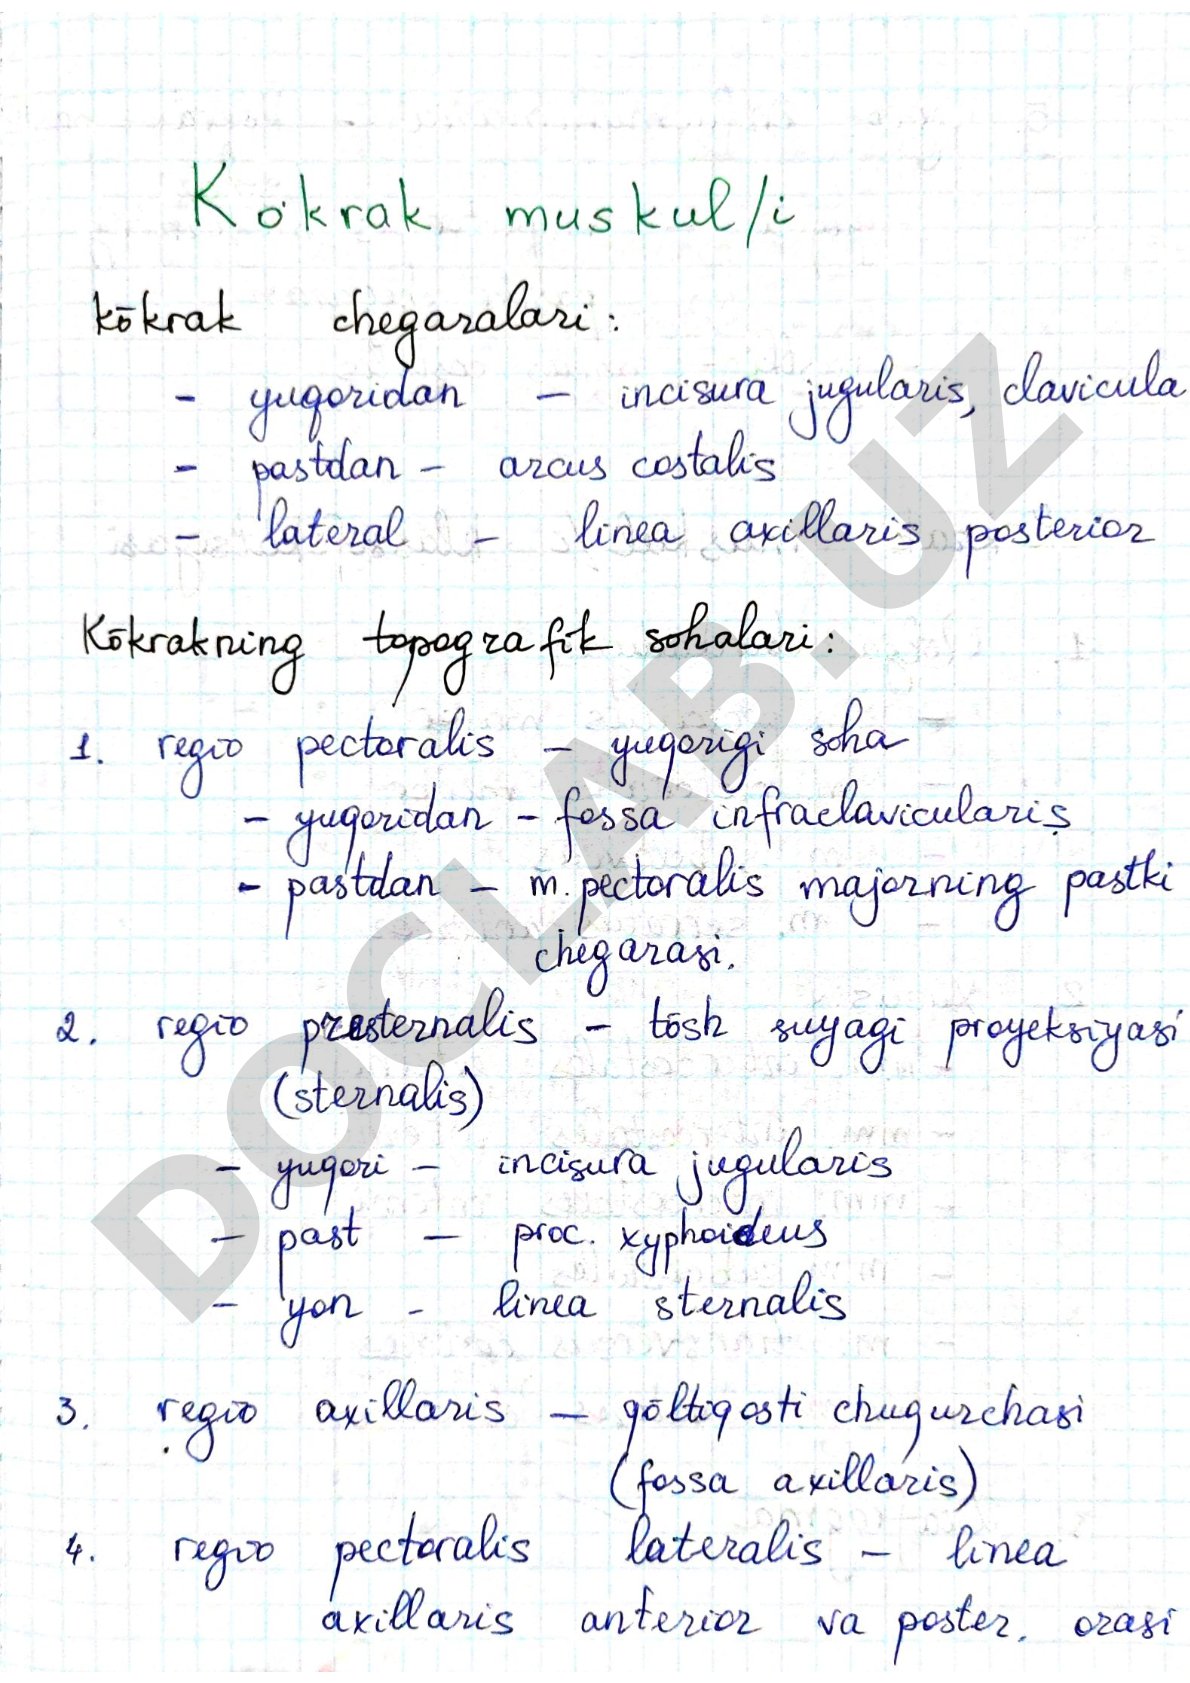 Kōkrak muskul/i
kōkrak chegaralari:
- yuqoridan - incisura jugularis, clavicula
- pastdan - arcus costalis
- lateral - linea axillaris posterior
Kōkrakning topografik sohalari:
1. regio pectoralis - yuqorigi soha
- yuqoridan - fossa infraclavicularis
- pastdan - m. pectoralis majorning pastki
chegarasi.
2. regio presternalis - tōsh suyagi proyeksiyasi
(sternalis)
- yuqori - incisura jugularis
- past - proc. xyphoideus
- yon - linea sternalis
3. regio axillaris - qōltiqosti chuqurchasi
(fossa axillaris)
4. regio pectoralis lateralis - linea
axillaris anterior va poster. orasi
DOCLAB.UZ